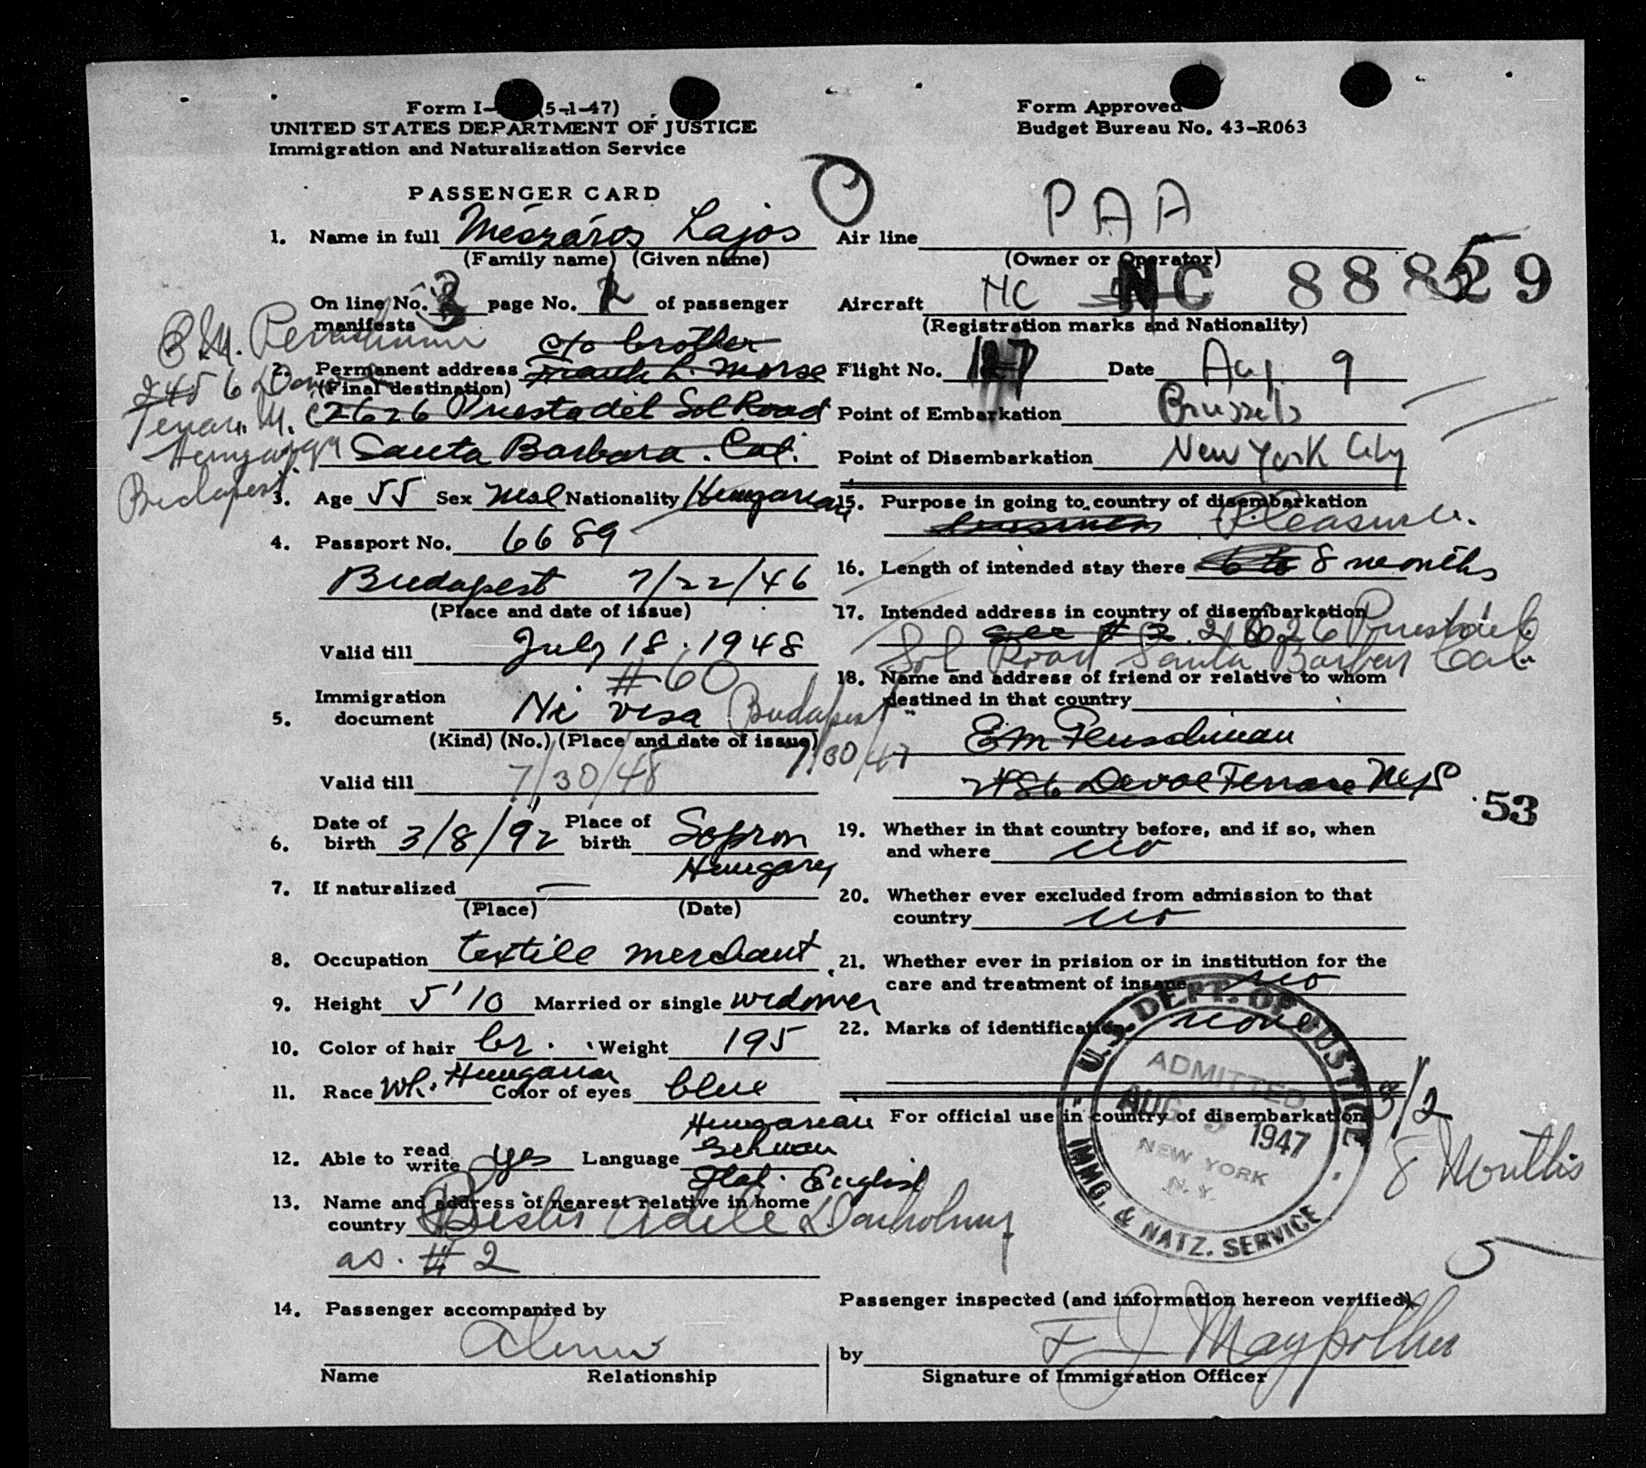 Form I- (5-1-47)
UNITED STATES DEPARTMENT OF JUSTICE
Immigration and Naturalization Service
Form Approved
Budget Bureau No. 43-R063
PASSENGER CARD
1. Name in full Mészáros Lajos
(Family name) (Given name)
On line No. 3 page No. 2 of passenger
manifests
E. M.
c/o brother
2. Permanent address Frank L. Morse
(Final destination)
2626 Puestadel Sol Road
Santa Barbara. Cal.
Hungary
Budapest
3. Age 55 Sex Mal Nationality Hungarian
4. Passport No. 6689
Budapest 7/22/46
(Place and date of issue)
Valid till July 18. 1948
#60
5. Immigration
document Ni visa Budapest
(Kind) (No.) (Place and date of issue)
7/30/47
Valid till 7/30/48
6. Date of
birth 3/8/92 Place of
birth Sopron
Hungary
7. If naturalized —
(Place) (Date)
8. Occupation textile merchant
9. Height 5'10 Married or single widower
10. Color of hair br. Weight 195
11. Race Wh. Hungarian Color of eyes blue
12. Able to read
write yes Language Hungarian
German
Ital. English
13. Name and address of nearest relative in home
country Adele
as. #2
14. Passenger accompanied by
Alone
Name Relationship
Air line PAA
(Owner or Operator)
Aircraft NC NC 88829 5
(Registration marks and Nationality)
Flight No. 127 Date Aug. 9
Point of Embarkation Brussels
Point of Disembarkation New York City
15. Purpose in going to country of disembarkation
business Pleasure.
16. Length of intended stay there 6 to 8 months
17. Intended address in country of disembarkation
see #2 2626 Puestadel
Sol Road Santa Barbara Cal.
18. Name and address of friend or relative to whom
destined in that country
EM
Terrace
53
19. Whether in that country before, and if so, when
and where no
20. Whether ever excluded from admission to that
country no
21. Whether ever in prision or in institution for the
care and treatment of insane no
22. Marks of identification none
For official use in country of disembarkation
U.S. DEPT. OF JUSTICE
ADMITTED
AUG 9 1947
NEW YORK
N.Y.
IMMG. & NATZ. SERVICE
B/2
8 Months
5
Passenger inspected (and information hereon verified)
by F J
Signature of Immigration Officer